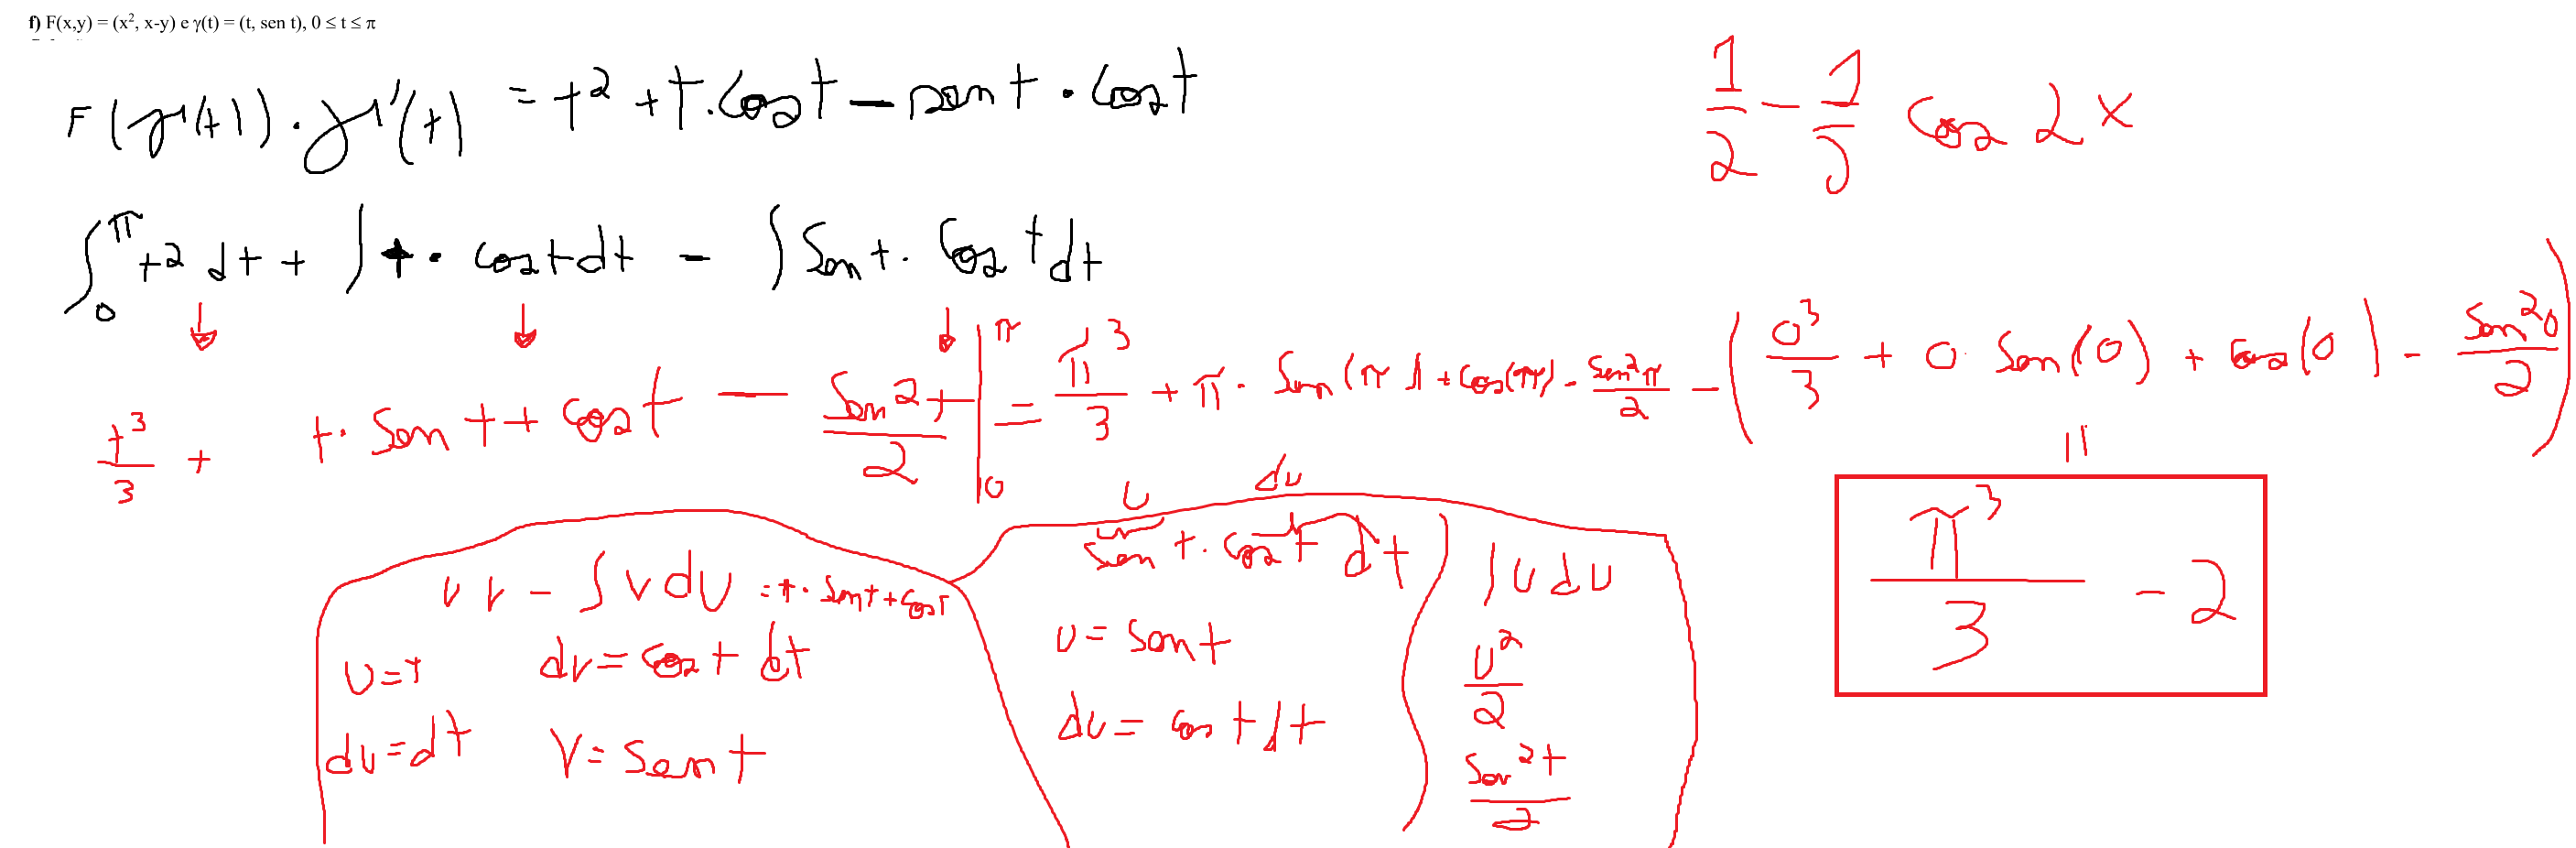 f) F(x,y) = (x², x-y) e γ(t) = (t, sen t), 0 ≤ t ≤ π
F(γ(t)) · γ'(t) = t² + t · cos t − sen t · cos t
1/2 − 1/2 cos 2x
∫₀^π t² dt + ∫ t · cos t dt − ∫ sen t · cos t dt
t³/3 + t · sen t + cos t − sen² t/2 |₀^π = π³/3 + π · sen(π) + cos(π) − sen² π/2 − (0³/3 + 0 · sen(0) + cos(0) − sen² 0/2)
=
π³/3 − 2
u v − ∫ v du = t · sen t + cos t
u = t dv = cos t dt
du = dt v = sen t
u du
sen t · cos t dt
u = sen t
du = cos t dt
∫ u du
u²/2
sen² t/2